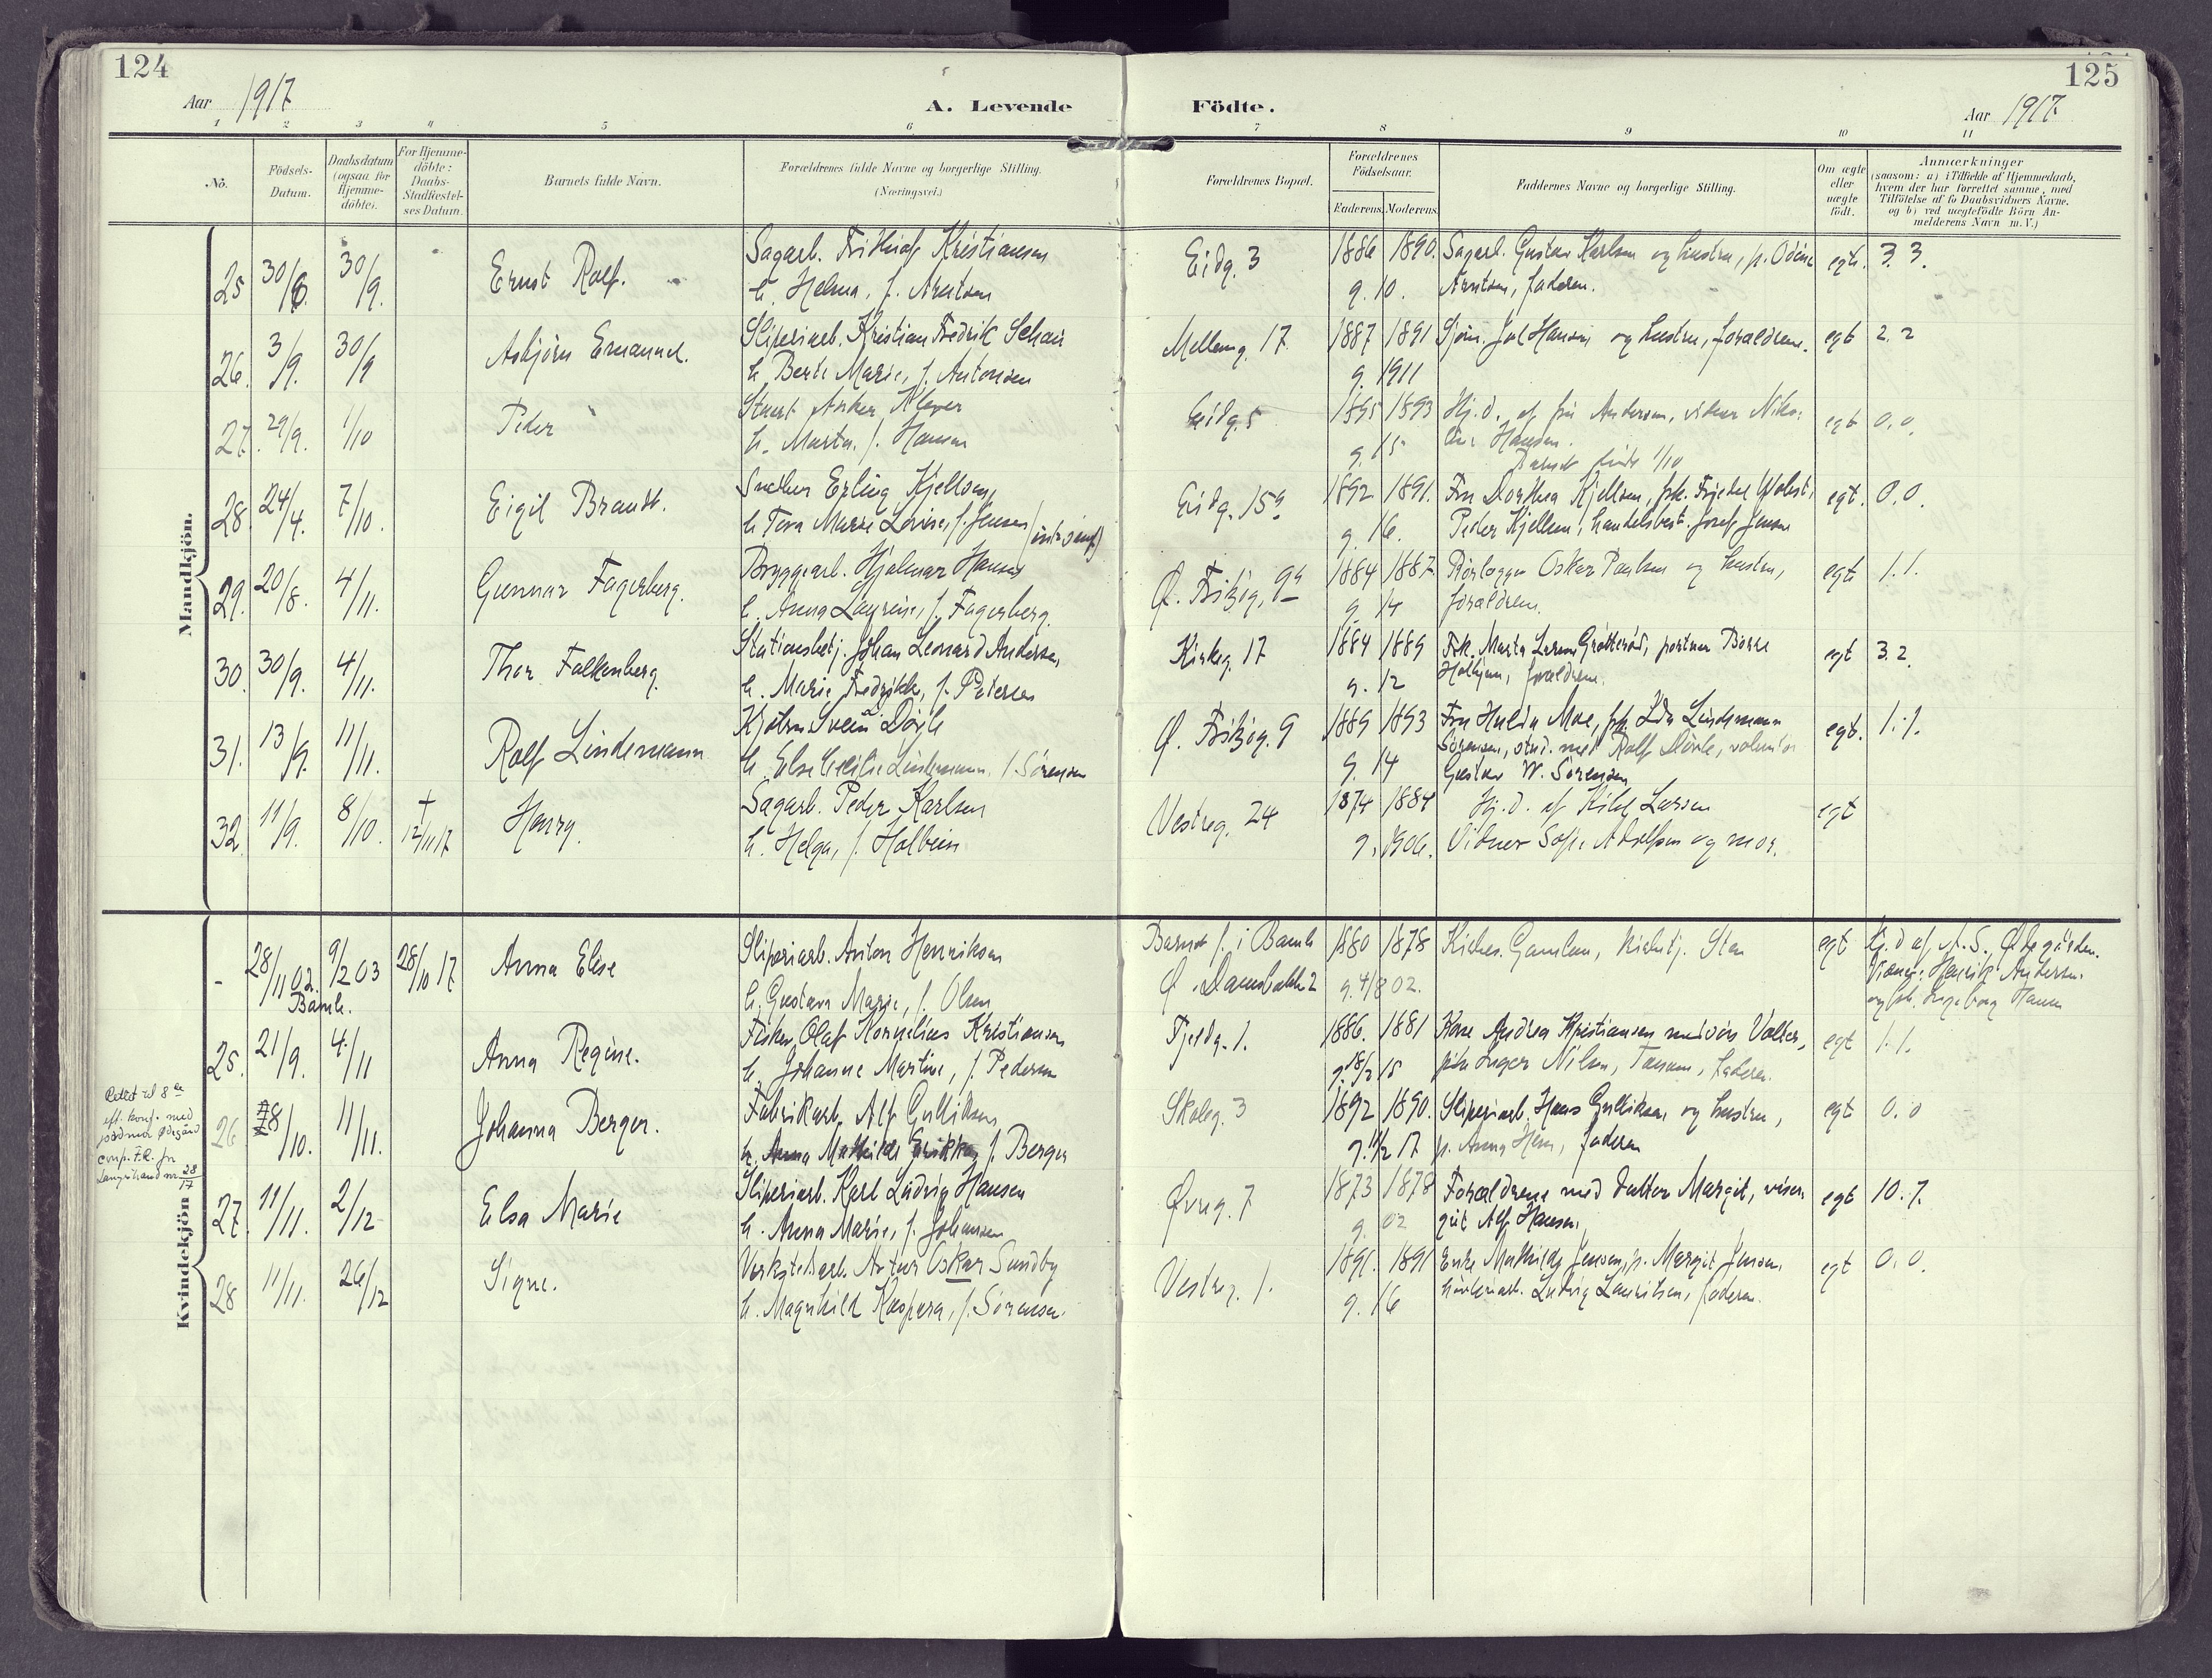 124
125
Aar 1917
A. Levende Födte.
Aar 1917
1 2 3 4 5 6 7 8 9 10 11
No. Födsels-Datum. Daabsdatum (ogsaa for Hjemme-döbte). For Hjemme-döbte: Daabs-Stadfæstel-ses Datum. Barnets fulde Navn. Forældrenes fulde Navne og borgerlige Stilling. (Næringsvei.) Forældrenes Bopæl. Forældrenes Födselsaar. Faderens. Moderens. Faddernes Navne og borgerlige Stilling. Om ægte eller uægte födt. Anmærkninger (saasom: a) i Tilfælde af Hjemmedaab, hvem der har forrettet samme, med Tilföielse af to Daabsvidners Navne. og b) ved uægtefödte Börn An-melderens Navn m. V.)
Mandkjön.
25 30/8. 30/9. Ernst Rolf. Sagarb. Fridthiof Kristiansen Eidg. 3 1886 1890. Sagarb. Gustav Karlsen og hustru, p. Odine egte. 3. 3.
h. Helma, f. Arntsen g. 10. Arntsen, faderen.
26. 3/9. 30/9 Asbjörn Emanuel. Sliperiarb. Kristian Fredrik Schau Mellemg. 17. 1887 1891 Sjöm. Jul Hansen og hustru, forældrene. egt 2. 2
h Berte Marie, f. Antonsen g. 1911
27. 29/9. 1/10 Peder Eidg. 5 1895 1893 Hj.d. af fru Andersen, vidner Niko- egt 0. 0.
h. Marta. f. Hansen g. 15 Hansen.
Barnet döde 1/10
28. 24/4. 7/10. Eigil Brandt. Snedker Erling Kjellsen, Eidg. 15a 1892 1891. Fru Dorthea Kjellsen, frk. egt. 0. 0.
h Tora Marie Lovise, f. Jensen g. 16. Peder Kjellsen, handelsbest. Josef Jensen
29. 20/8. 4/11. Gunnar Fagerberg. Bryggearb. Hjalmar Hansen Ø. 9a 1884 1887 Rörlægger Oskar Paulsen og hustru, egt. 1. 1.
h. Anna f. Fagerberg. g. 14 forældrene.
30. 30/9. 4/11. Thor Falkenberg. Stationsbetj. Johan Leonard Andersen, Kirkeg. 17 1884 1889 Frk. Marta Larsen portner Börre egt 3. 2.
h. Marie Fredrikke, f. Petersen g. 12 forældrene.
31. 13/9. 11/11. Rolf Lindemann Svein Ø. 9 1889 1893 Fru Hulda Moe, frk. Ida Lindemann egt. 1. 1.
h. Else Cecilie Lindemann. f. Sörensen g. 14 Sörensen, stud. med Rolf volontör
Gustav W. Sörensen
32. 11/9. 8/10. † 12/11 17 Henry. Sagarb. Peder Karlsen Vestreg. 24 1874 1884 Hj.d. af Larsen egt
h. Helga, f. Holbein g. 1906. Vidner Sofie Adolfsen og mor.
Kvindekjön
- 28/11 02. 9/2 03 28/10 17 Anna Elise Sliperiarb. Anton Henriksen Barnet f. i Bamle 1880 1878 Kirkes. Gamlem, kirketj. Sten egt Hj.d af A. S. Ødegården.
Bamle. h. Gustava Marie, f. Olsen Ø. Damsbakk. 2 g. 4/8 02. Vidner: Henrik Andersen
og frk. Ingeborg Hansen
25. 21/9. 4/11 Anna Regine. Fisker Olaf Kornelius Kristiansen Fjeldg. 1. 1886. 1881 Kone Andrea Kristiansen Volter, egt 1. 1.
h. Johanne Martine, f. Pedersen g. 18/2 15 Inger Nilsen, faderen.
Rettet til 8de
eft. konf. med
jordmor Ødegård
26 8/10. 11/11. Johanna Berger. Fabrikarb. Alf Gulliksen Skoleg. 3 1892 1890. Sliperiarb. Hans Gulliksen og hustru, egt 0. 0
h. Anna Mathilde f. Berger g. 11/2 17 p. Anna Hem, faderen
27. 11/11. 2/12 Elsa Marie Sliperiarb. Karl Ludvig Hansen Øvreg. 7 1873 1878 Forældrene med datter Margit, viser- egt 10. 7.
h. Anna Marie, f. Johansen g. 02 gut Alf Hansen.
28 11/11. 26/12 Signe. Verkstedarb. Artur Oskar Sundby Vestreg. 1. 1891. 1891 Enke Mathilde Jensen, p. Margit Jensen, egt 0. 0.
h. Magnhild Kaspara, f. Sörensen. g. 16 Ludvig Lauritsen, faderen.